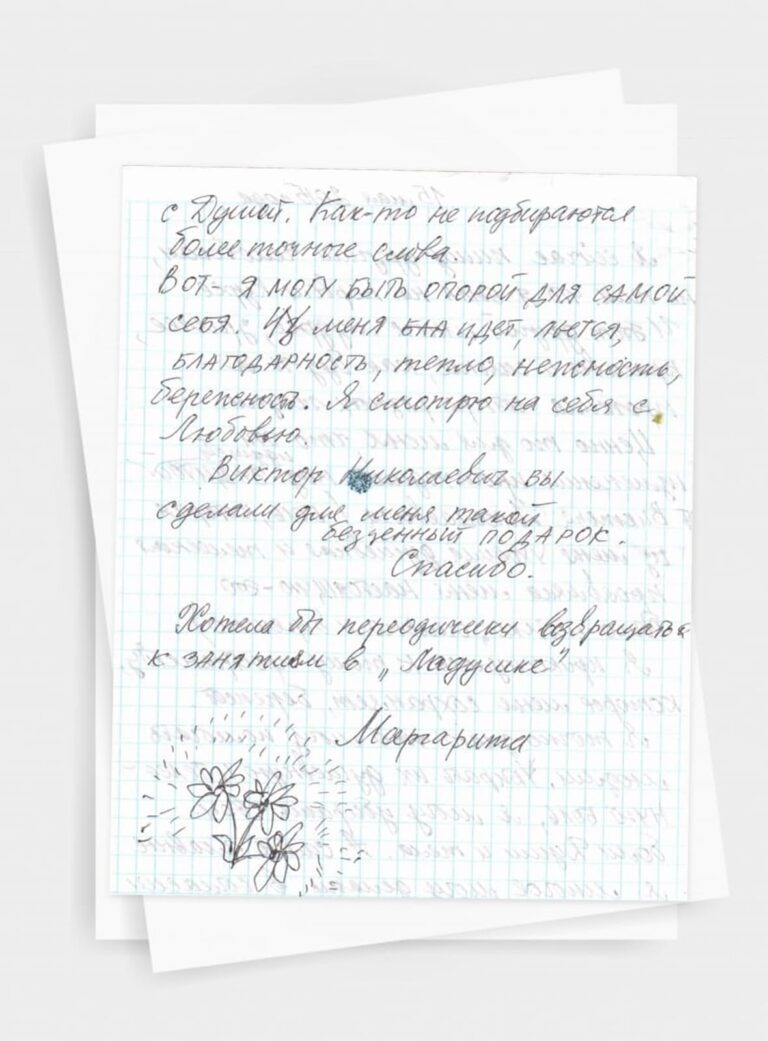 с Душой. Как-то не подбираются
более точные слова.
Вот - я могу быть опорой для самой
себя. Из меня бла идет, льется,
благодарность, тепло, нежность,
бережность. Я смотрю на себя с
Любовью.
Виктор Николаевич вы
сделали для меня такой
безценный подарок.
Спасибо.
Хотела бы переодически возвращаться
к занятиям в „Ладушке"
Маргарита